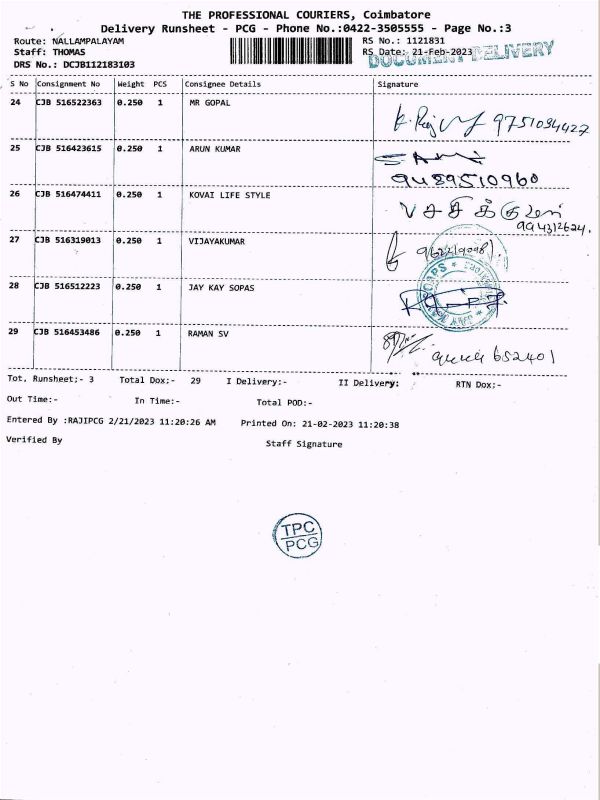 THE PROFESSIONAL COURIERS, Coimbatore
Delivery Runsheet - PCG - Phone No.:0422-3505555 - Page No.:3
Route: NALLAMPALAYAM
RS No.: 1121831
Staff: THOMAS
RS Date: 21-Feb-2023
DOCUMENT DELIVERY
DRS No.: DCJB112183103
S No Consignment No Weight PCS Consignee Details Signature
24 CJB 516522363 0.250 1 MR GOPAL
9751094427
25 CJB 516423615 0.250 1 ARUN KUMAR
9489510960
26 CJB 516474411 0.250 1 KOVAI LIFE STYLE
994312624.
27 CJB 516319013 0.250 1 VIJAYAKUMAR
28 CJB 516512223 0.250 1 JAY KAY SOPAS
29 CJB 516453486 0.250 1 RAMAN SV
652401
Tot. Runsheet:- 3 Total Dox:- 29 I Delivery:- II Delivery: RTN Dox:-
Out Time:- In Time:- Total POD:-
Entered By :RAJIPCG 2/21/2023 11:20:26 AM Printed On: 21-02-2023 11:20:38
Verified By Staff Signature
TPC
PCG